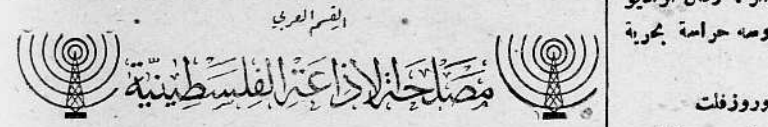 القسم العربي
مصلحة الاذاعة الفلسطينية
وسه حراسة بحرية
وروزفلت